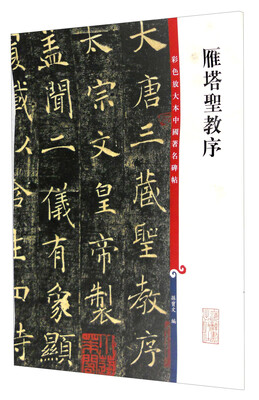 雁塔聖教序
彩色放大本中國著名碑帖
孫寶文 編
大唐三藏聖教序
太宗文皇帝製
蓋聞二儀有象顯
覆載以含生四時